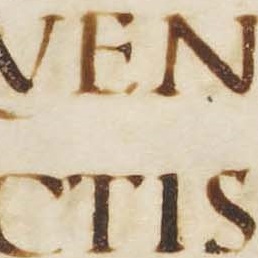 VEN
CTIS